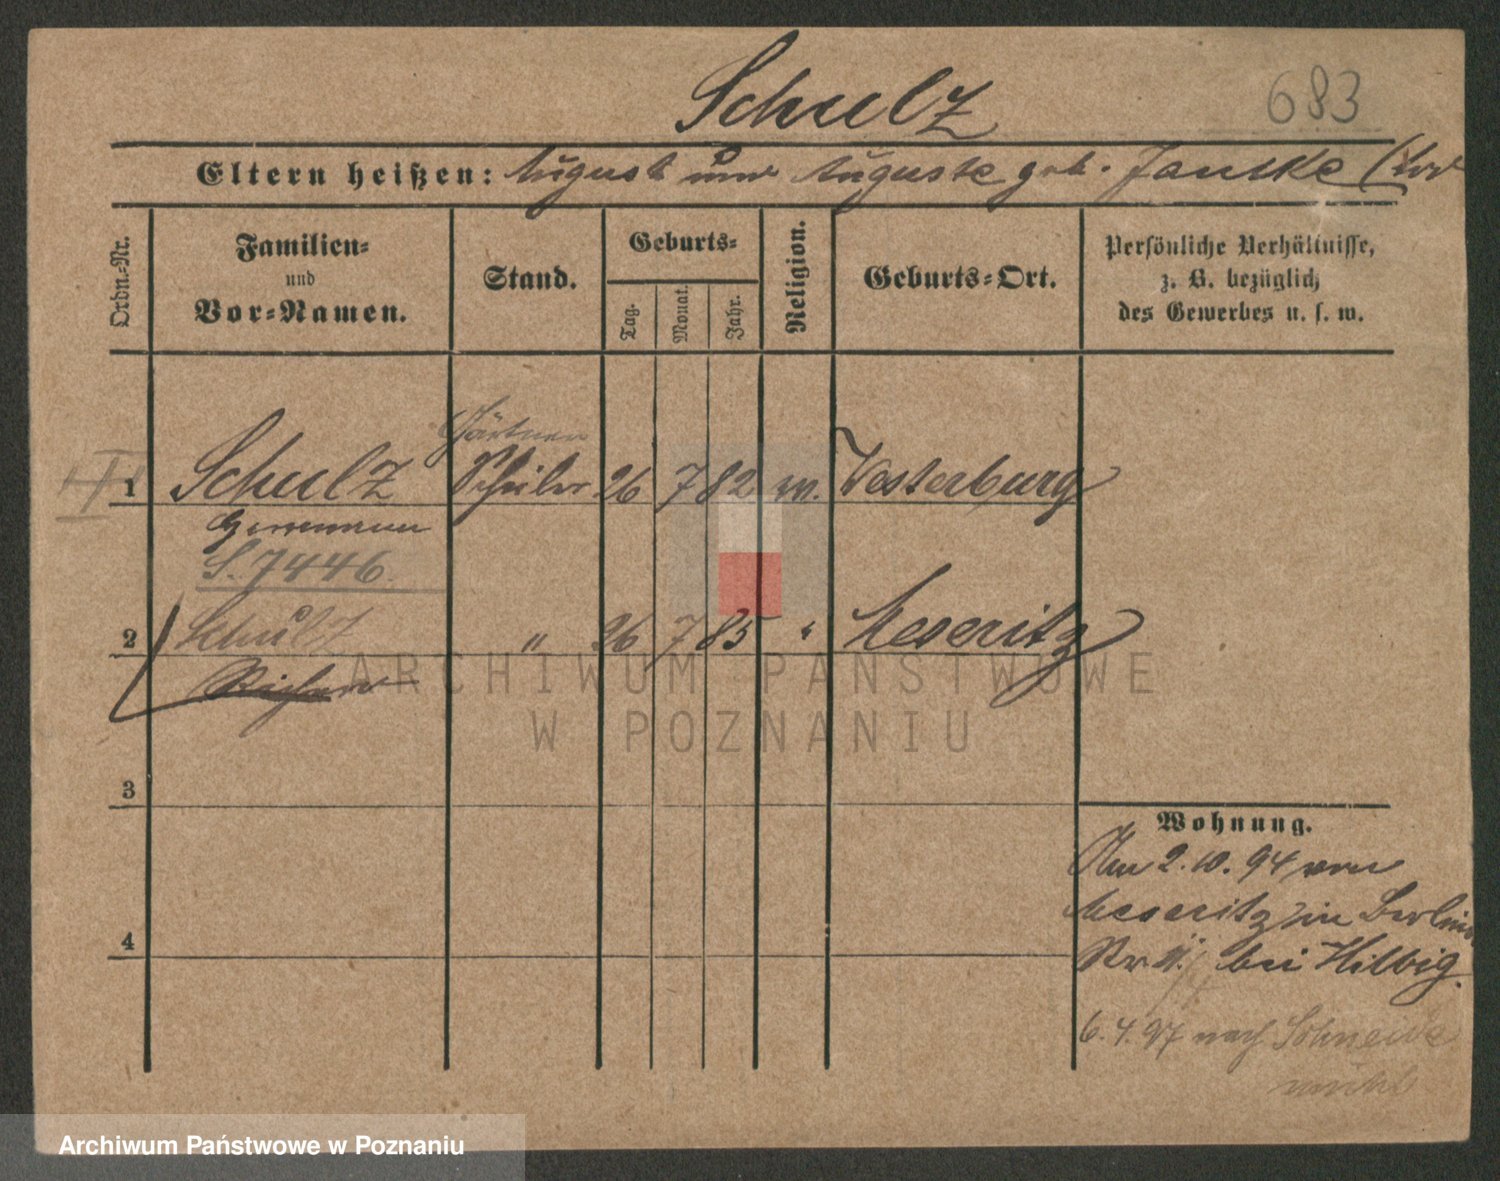 Schulz
683
Eltern heißen: August und Auguste geb. Jantke
Ordn.-Nr.
Familien-
und
Vor-Namen.
Stand.
Geburts-
Tag.
Monat.
Jahr.
Religion.
Geburts-Ort.
Persönliche Verhältnisse,
z. B. bezüglich
des Gewerbes u. s. w.
Gärtner
1 Schulz Schüler 26 7 82 Westerburg
Hermann
S. 7446.
2 Schulz " 26 7 85 " Meseritz
3
Wohnung.
Am 2.10.94 von
Meseritz in Berliner
Str. 11. bei Hilbig.
4
6.4.97 nach Schneide
mühl
ARCHIWUM PAŃSTWOWE
W POZNANIU
Archiwum Państwowe w Poznaniu